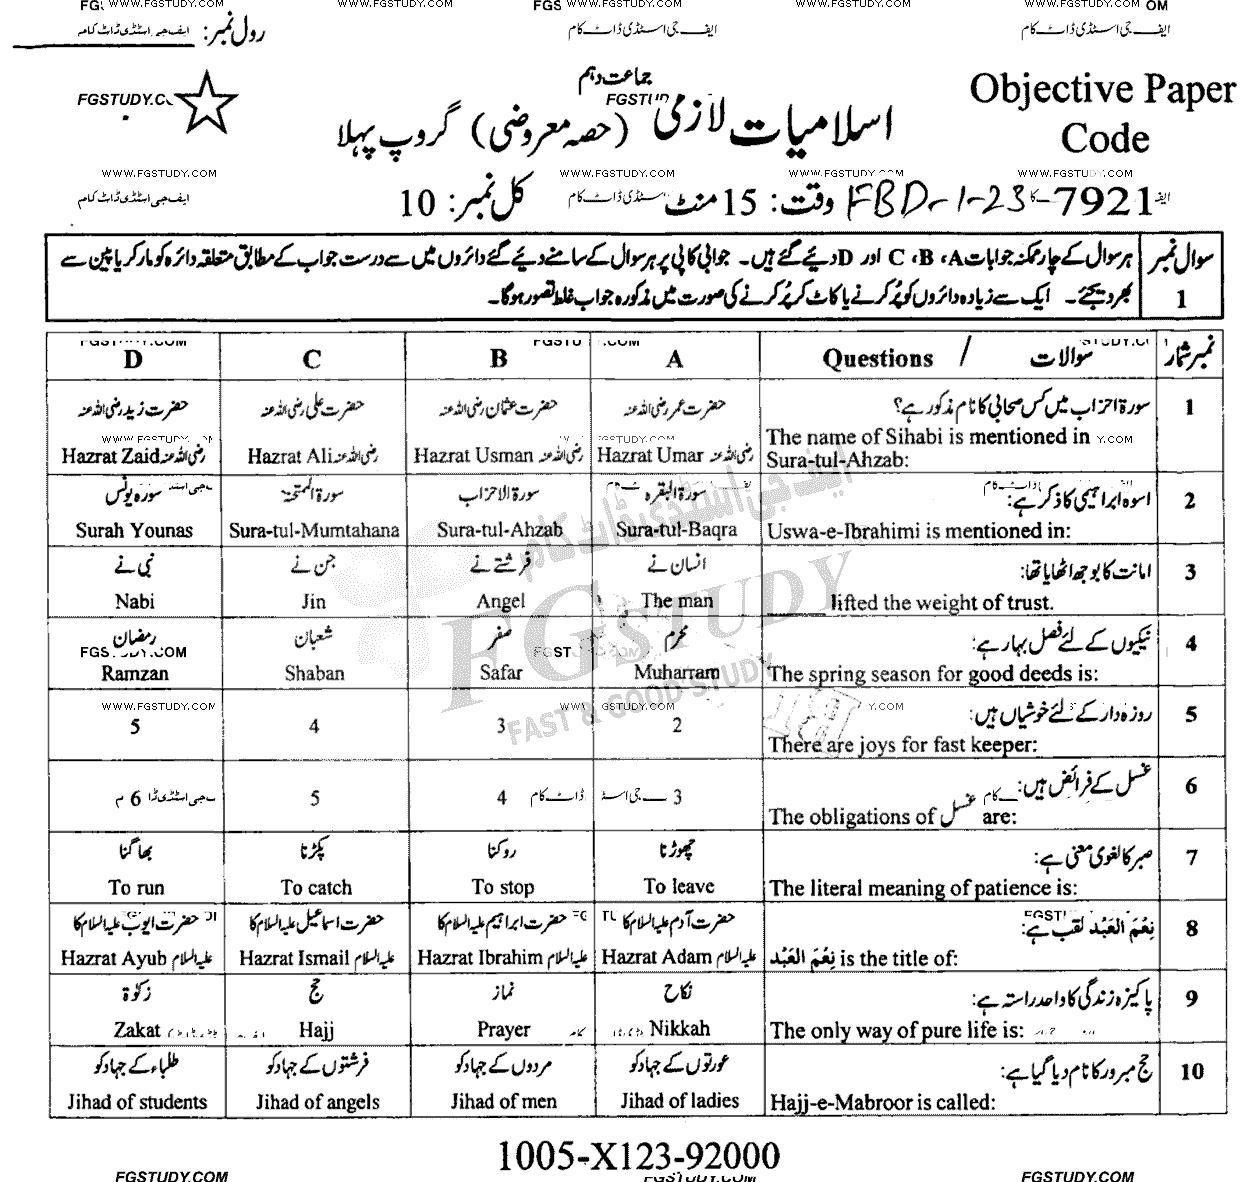 FGSTUDY.COM
WWW.FGSTUDY.COM
رول نمبر:
ایف جی اسٹڈی ڈاٹ کام
جماعت دہم
اسلامیات لازمی (حصہ معروضی) گروپ پہلا
Objective Paper
Code
وقت: 15 منٹ
کل نمبر: 10
FBD-1-23-7921
سوال نمبر 1
ہر سوال کے چار ممکنہ جوابات A، B، C اور D دیئے گئے ہیں۔ جوابی کاپی پر ہر سوال کے سامنے دیئے گئے دائروں میں سے درست جواب کے مطابق متعلقہ دائرہ کو مارکر یا پین سے
بھر دیجئے۔ ایک سے زیادہ دائروں کو پُر کرنے یا کاٹ کر پُر کرنے کی صورت میں مذکورہ جواب غلط تصور ہوگا۔
نمبر شمار سوالات / Questions A B C D
1 سورۃ احزاب میں کس صحابی کا نام مذکور ہے؟
حضرت عمر رضی اللہ عنہ حضرت عثمان رضی اللہ عنہ حضرت علی رضی اللہ عنہ حضرت زید رضی اللہ عنہ
The name of Sihabi is mentioned in
Sura-tul-Ahzab:
Hazrat Umar رضی اللہ عنہ Hazrat Usman رضی اللہ عنہ Hazrat Ali رضی اللہ عنہ Hazrat Zaid رضی اللہ عنہ
2 اسوہ ابراہیمی کا ذکر ہے:
سورۃ البقرہ سورۃ الاحزاب سورۃ الممتحنۃ سورہ یونس
Uswa-e-Ibrahimi is mentioned in:
Sura-tul-Baqra Sura-tul-Ahzab Sura-tul-Mumtahana Surah Younas
3 امانت کا بوجھ اٹھایا تھا:
انسان نے فرشتے نے جن نے نبی نے
______ lifted the weight of trust.
The man Angel Jin Nabi
4 نیکیوں کے لئے فصل بہار ہے:
محرم صفر شعبان رمضان
The spring season for good deeds is:
Muharram Safar Shaban Ramzan
5 روزہ دار کے لئے خوشیاں ہیں:
There are joys for fast keeper:
2 3 4 5
6 غسل کے فرائض ہیں:
The obligations of غسل are:
3 4 5 6
7 صبر کا لغوی معنی ہے:
چھوڑنا روکنا پکڑنا بھاگنا
The literal meaning of patience is:
To leave To stop To catch To run
8 نِعْمَ الْعَبْد لقب ہے:
حضرت آدم علیہ السلام کا حضرت ابراہیم علیہ السلام کا حضرت اسماعیل علیہ السلام کا حضرت ایوب علیہ السلام کا
نِعْمَ الْعَبْد is the title of:
Hazrat Adam علیہ السلام Hazrat Ibrahim علیہ السلام Hazrat Ismail علیہ السلام Hazrat Ayub علیہ السلام
9 پاکیزہ زندگی کا واحد راستہ ہے:
نکاح نماز حج زکوٰۃ
The only way of pure life is:
Nikkah Prayer Hajj Zakat
10 حج مبرور کا نام دیا گیا ہے:
عورتوں کے جہاد کو مردوں کے جہاد کو فرشتوں کے جہاد کو طلباء کے جہاد کو
Hajj-e-Mabroor is called:
Jihad of ladies Jihad of men Jihad of angels Jihad of students
ایف جی اسٹڈی ڈاٹ کام
FGSTUDY
FAST & GOOD STUDY
1005-X123-92000
FGSTUDY.COM